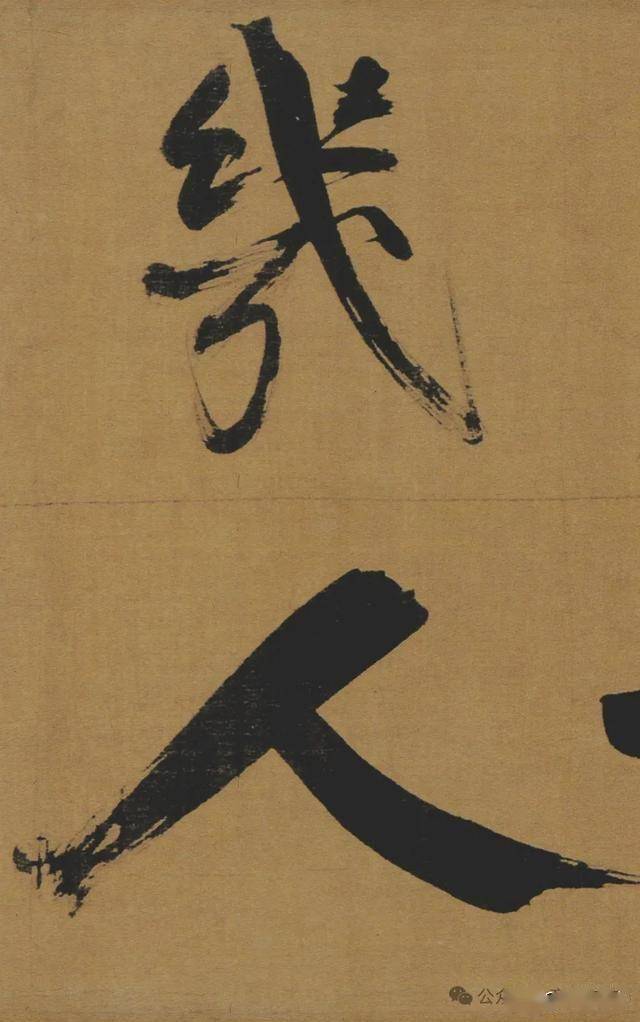 幾
人
公众